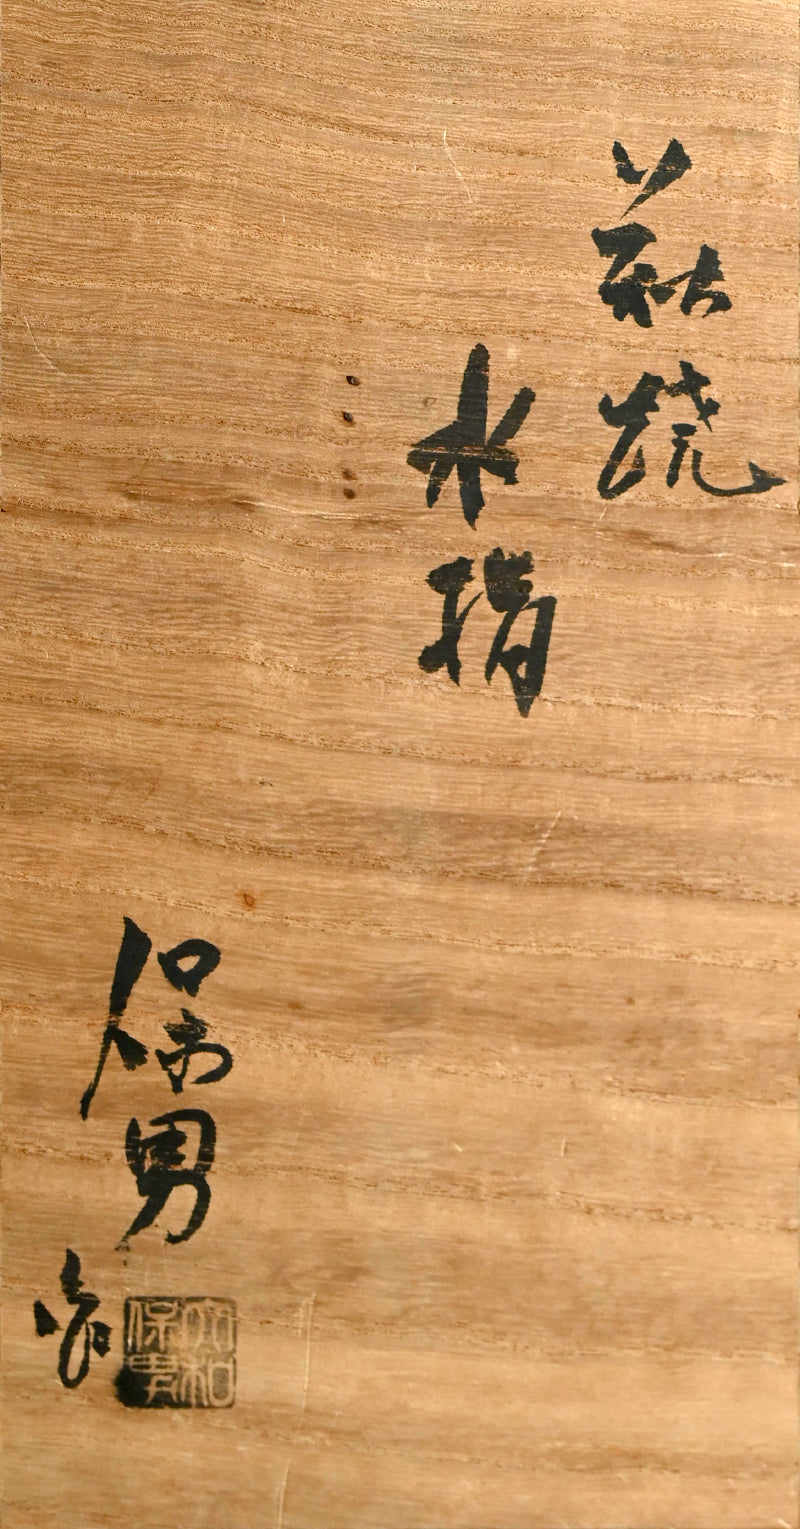 萩焼
水指
保男
作
大和
保男